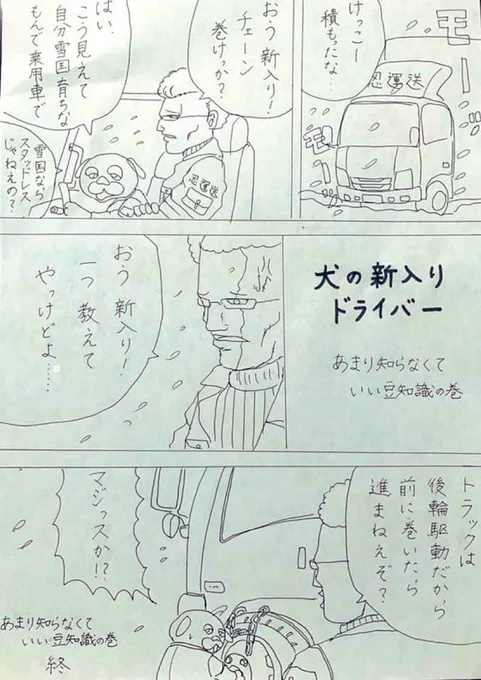 モー
モー
忍運送
けっこー
積もたな…
おう 新入り!
チェーン
巻けっか?
はい、
こう見えて
自分雪国育ちな
もんで乗用車で
雪国なら
スタッドレス
じゃねえの?
忍運送
犬の新入り
ドライバー
あまり知らなくて
いい豆知識の巻
おう 新入り!
一つ教えて
やっけどよ……
トラックは
後輪駆動だから
前に巻いたら
進まねえぞ?
マジっスか!?
あまり知らなくて
いい豆知識の巻
終